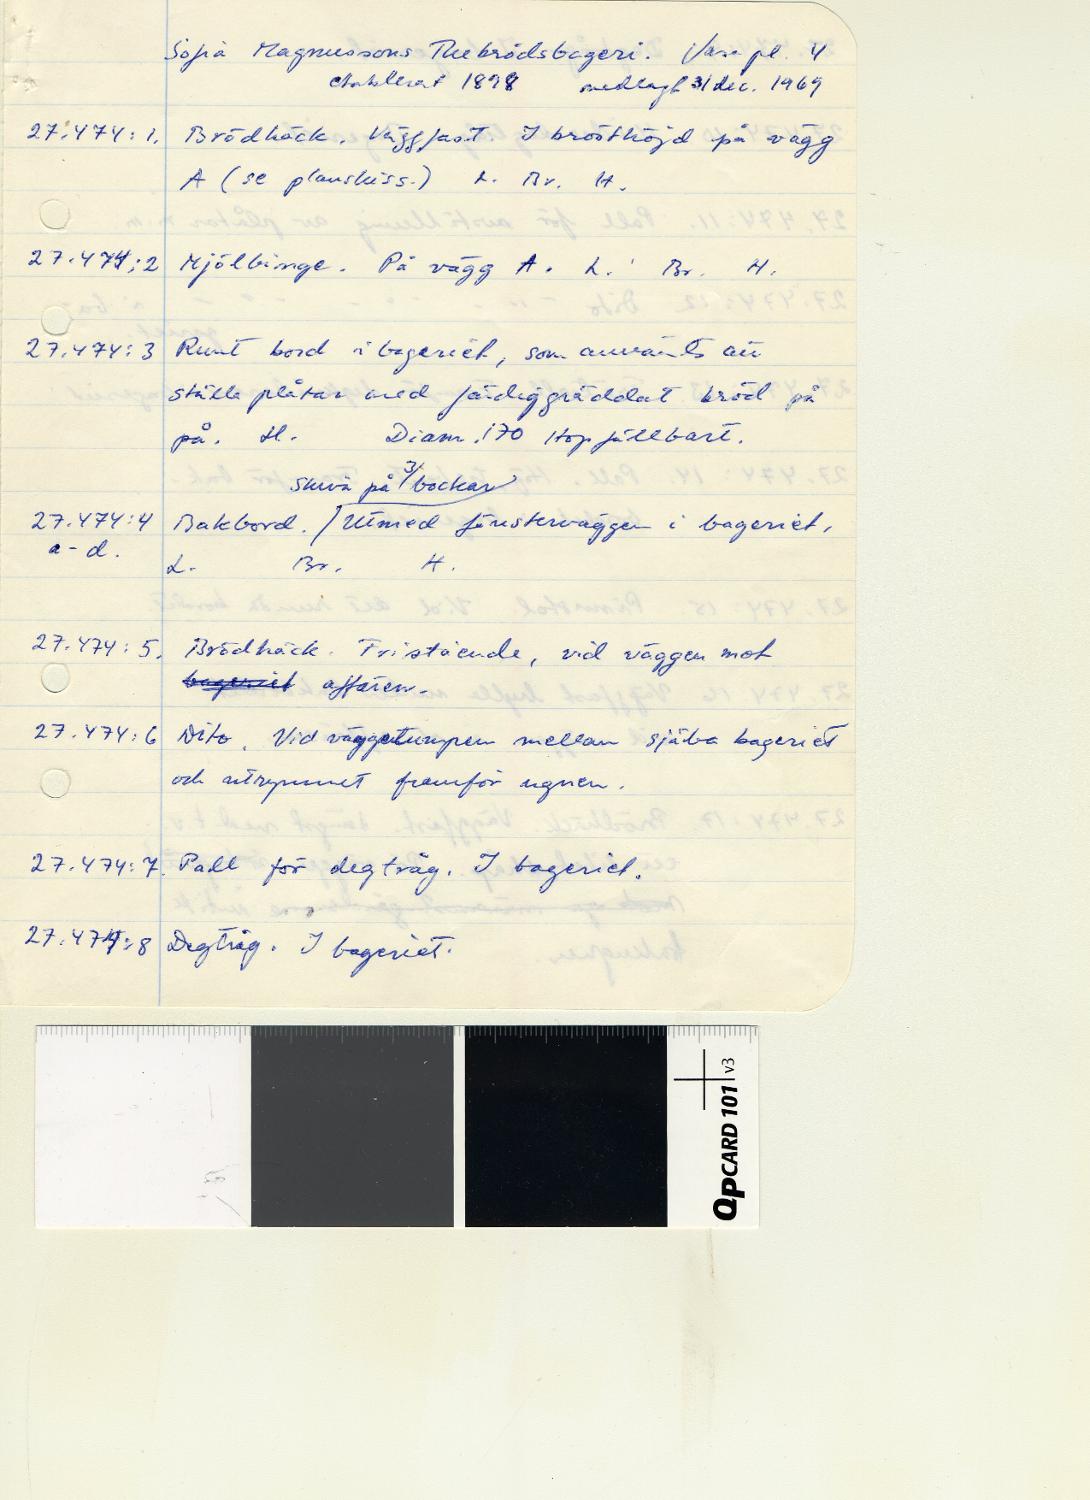 Sofia Magnussons Thebrödsbageri. Vasapl. 4
etablerat 1898 nedlagt 31 dec. 1969
27.474:1. Brödhäck. Väggfast I brösthöjd på vägg
A (se planskiss.) L. Br. H.
27.474:2 Mjölbinge. På vägg A. L. Br. H.
27.474:3 Runt bord i bageriet, som använts att
ställa plåtar med färdiggräddat bröd på
på. H. Diam. 170 Hopfällbart.
skiva på 3 bockar
27.474:4 Bakbord. Utmed fönsterväggen i bageriet,
a-d. L. Br. H.
27.474:5. Brödhäck. Fristående, vid väggen mot
bageriet affären.
27.474:6 Dito. Vid väggstumpen mellan själva bageriet
och utrymmet framför ugnen.
27.474:7. Pall för degtråg. I bageriet.
27.474:8 Degtråg. I bageriet.
QPCARD 101 v3